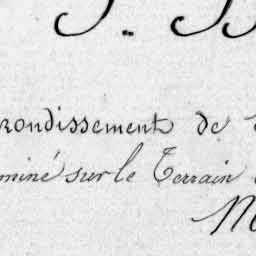 rrondissement de
miné sur le Terrain
M